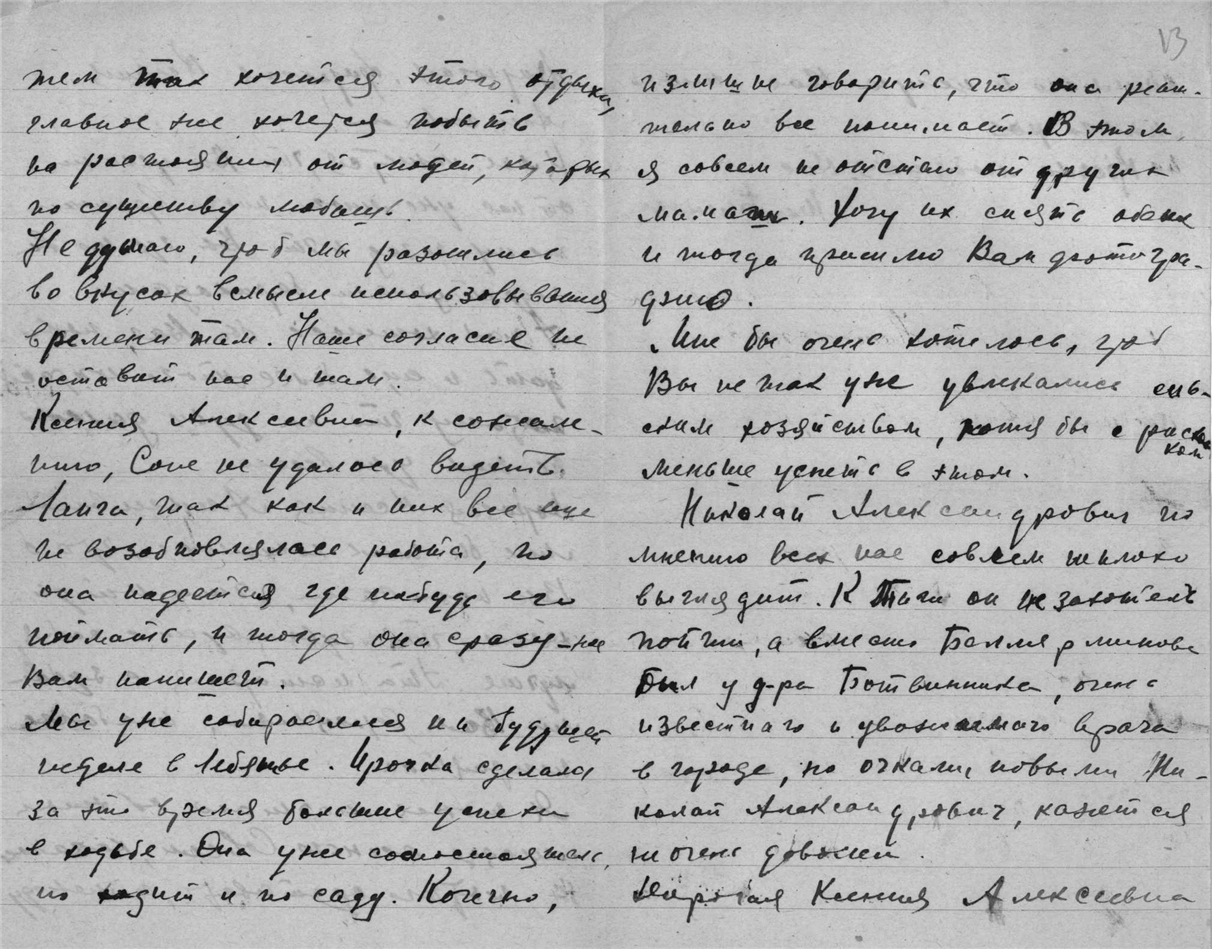 тем так хочется этого отдыха,
главное же хочется побыть
на расстоянии от людей, которых
по существу любишь.
Не думаю, чтоб мы разошлись
во вкусах в смысле использовывания
времени там. Наше согласие не
оставит нас и там.
Ксения Алексеевна, к сожале-
нию, Соне не удалось видеть
Ланга, так как и них все еще
не возобновлялась работа, но
она надеется где нибудь его
поймать, и тогда она сразу-же
Вам напишет.
Мы уже собираемся на будущей
неделе в Лебяжье. Ирочка сделала
за это время большие успехи
в ходьбе. Она уже самостоятель
но ходит и по саду. Конечно,
13
излишне говорить, что она реши-
тельно все понимает. В этом
я совсем не отстаю от других
мамаш. Хочу их снять обеих
и тогда пришлю Вам фотогра-
фию.
Мне бы очень хотелось, чтоб
Вы не так уже увлекались сель-
ским хозяйством, хотя бы с риском
меньше успеть в этом.
Николай Александрович по
мнению всех нас совсем неплохо
выглядит. К он не захотел
пойти, а вместо Беллярминова
был у д-ра Ботвинника, очень
известного и уважаемого врача
в городе, но очками новыми Ни-
колай Александрович, кажется
не очень доволен.
Дорогая Ксения Алексеевна